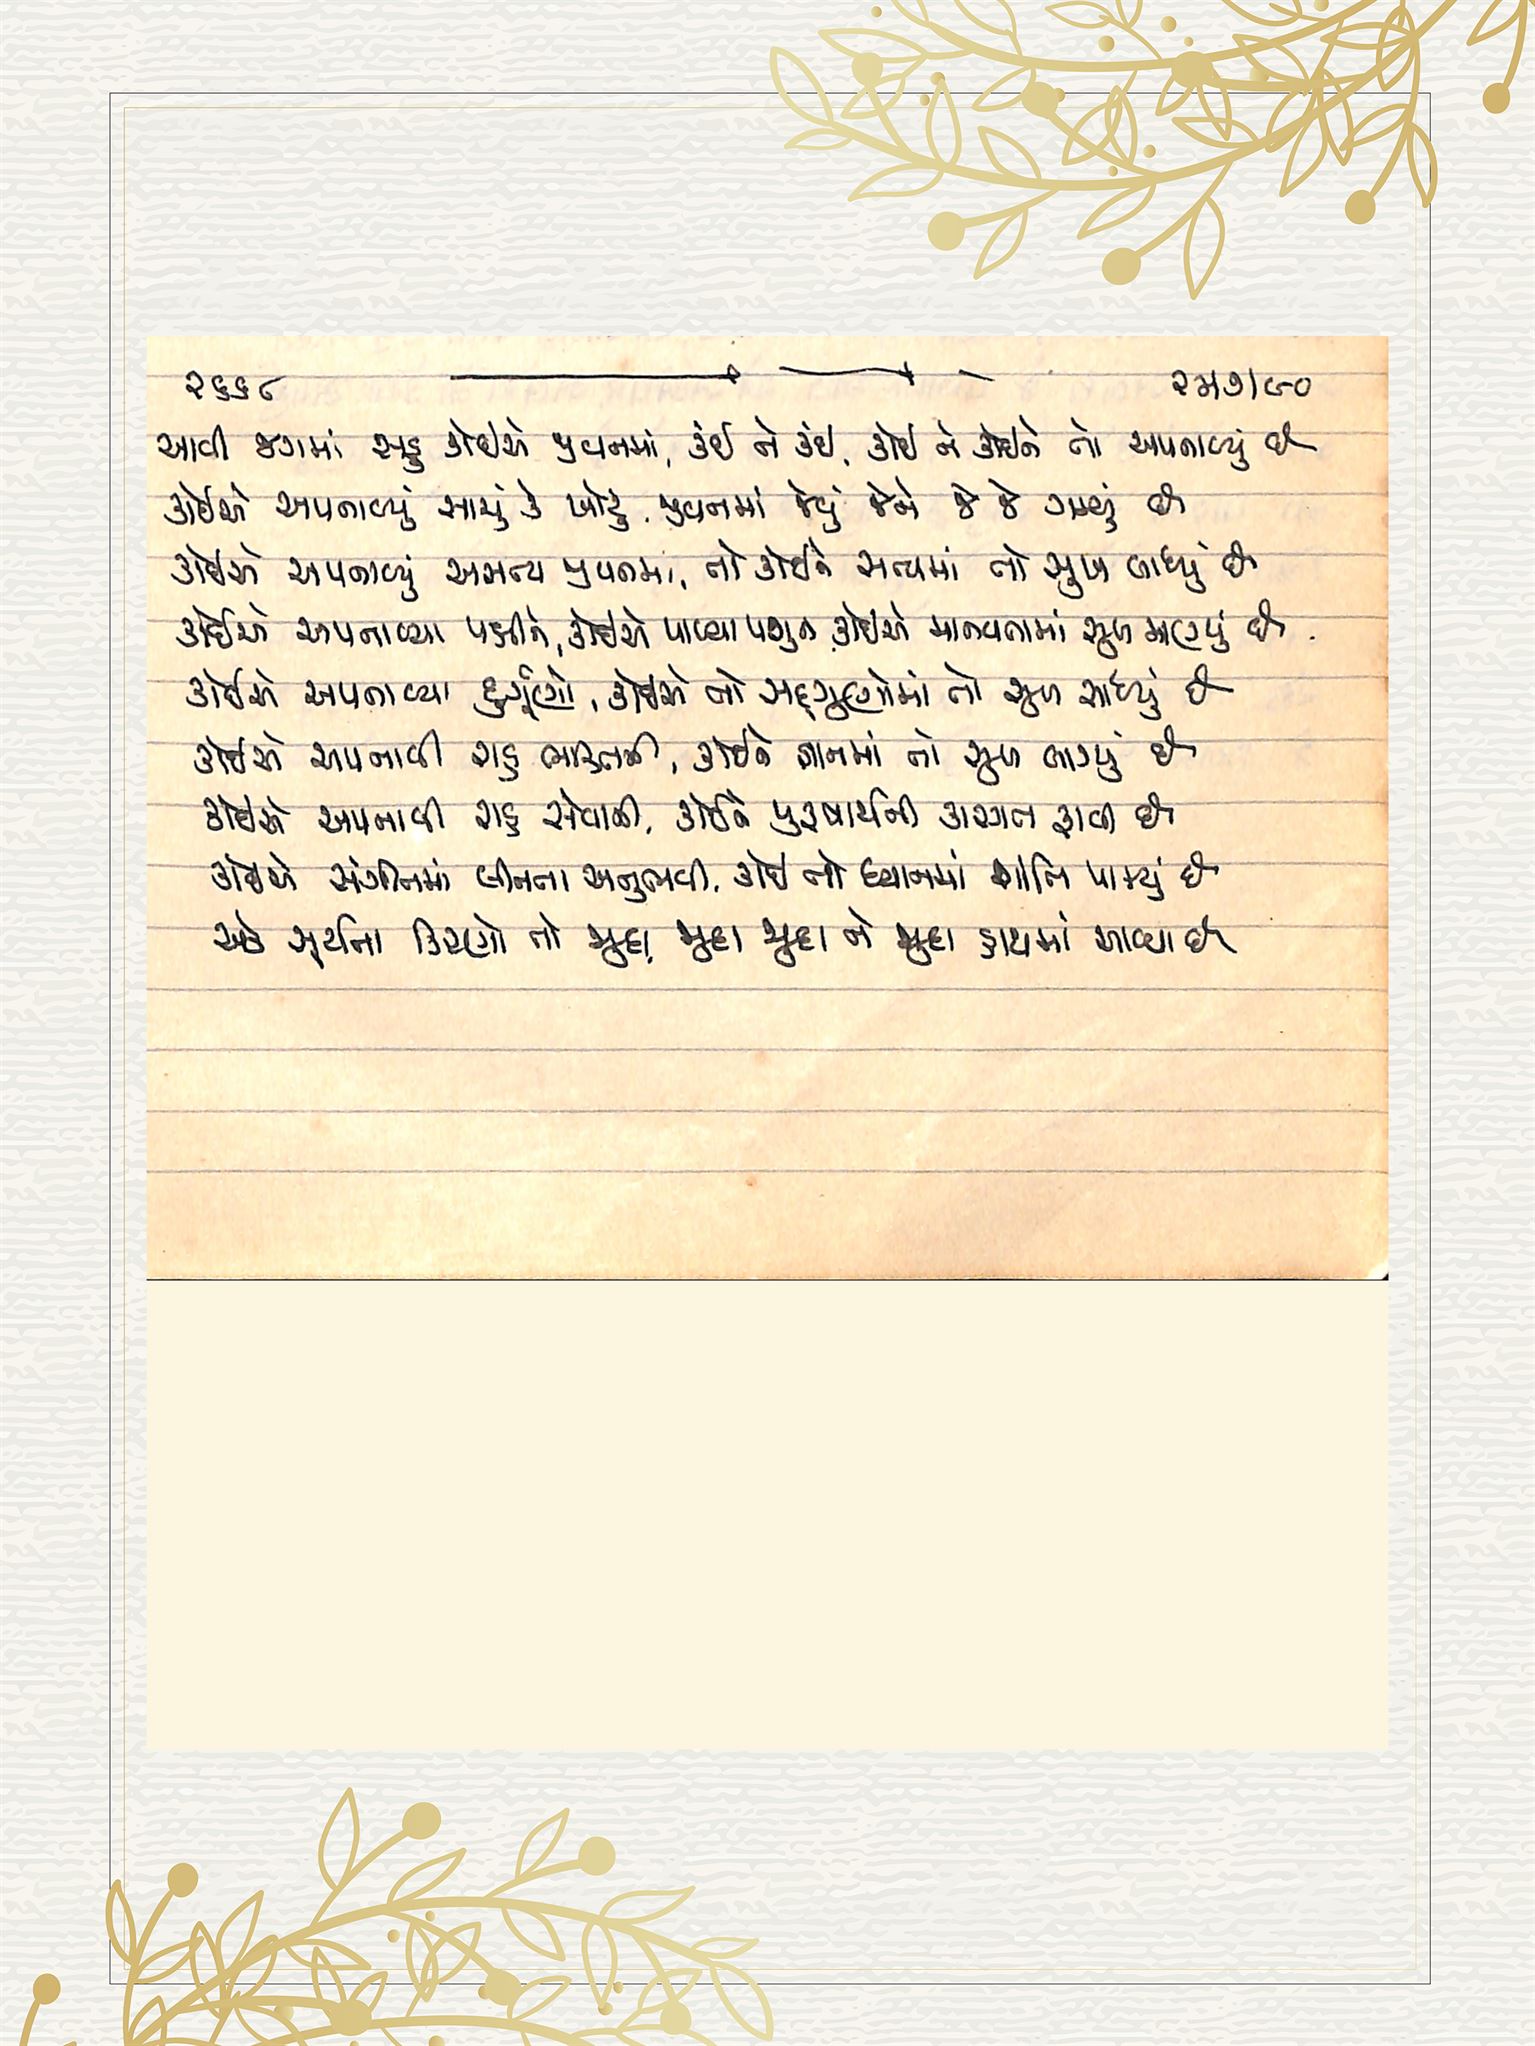 ૨૬૬૮ ૨૫/૭/૯૦
આવી જગમાં સહુ કોઈએ જીવનમાં, કંઈ ને કંઈ, કોઈ ને કોઈને તો અપનાવ્યું છે
કોઈએ અપનાવ્યું સાચું કે ખોટું, જીવનમાં જેવું જેને જે જે ગમ્યું છે
કોઈએ અપનાવ્યું અસત્ય જીવનમાં, તો કોઈને સત્યમાં તો સુખ લાધ્યું છે
કોઈએ અપનાવ્યા પક્ષીને, કોઈએ પાળ્યા પશુને, કોઈએ માનવતામાં સુખ માણ્યું છે.
કોઈએ અપનાવ્યા દુર્ગુણો, કોઈએ તો સદ્ગુણોમાં તો સુખ સાધ્યું છે
કોઈએ અપનાવી રાહ ભક્તિની, કોઈને જ્ઞાનમાં તો સુખ લાગ્યું છે
કોઈએ અપનાવી રાહ સેવાની, કોઈને પુરુષાર્થની કાયમ ફાવી છે
કોઈએ સંગીતમાં લીનતા અનુભવી, કોઈ તો ધ્યાનમાં શાંતિ પામ્યું છે
એક સૂર્યના કિરણો તો જુદા, જુદા જુદા ને જુદા હાથમાં આવ્યા છે